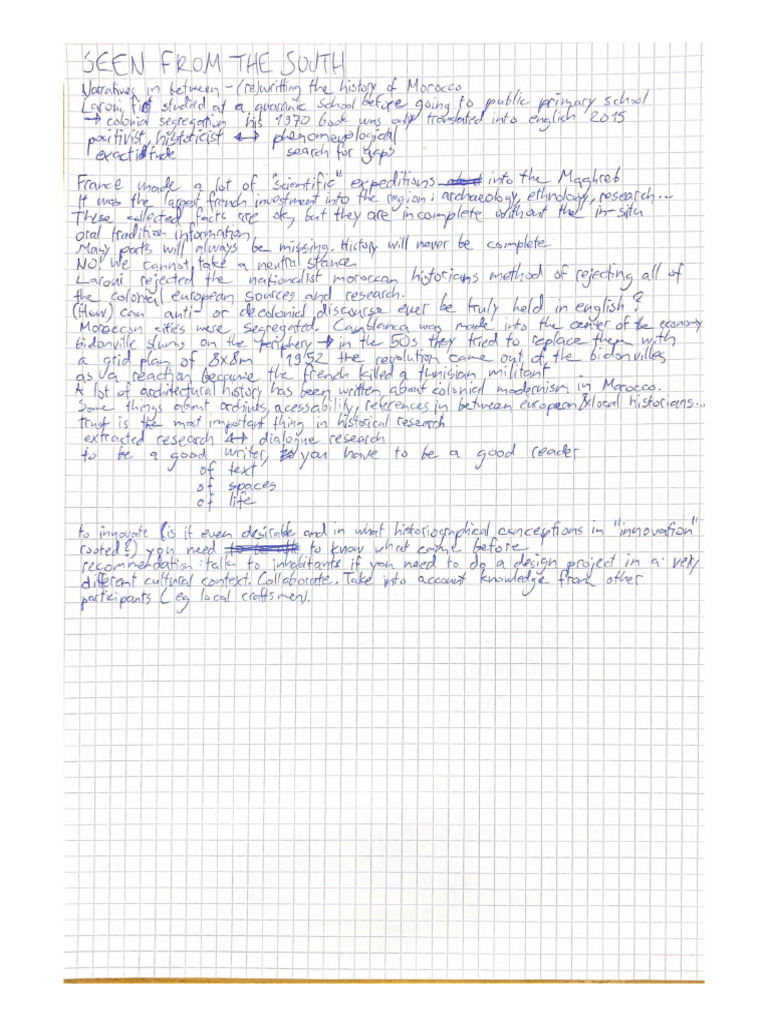 SEEN FROM THE SOUTH
Narratives in between - (re)writting the history of Morocco
Laroui first studied at a quaranic school before going to public primary school
→ colonial segregation his 1970 book was only translated into english 2015
positivist, historicist ↔ phenomenological
exactitude search for gaps
France made a lot of "scientific" expeditions into the Maghreb
It was the largest french investment into the region: archaeology, ethnology, research...
These collected facts are ok, but they are incomplete without the in-situ
oral tradition information
Many parts will always be missing. History will never be complete
NO! we cannot take a neutral stance
Laroui rejected the nationalist moroccan historians method of rejecting all of
the colonial european sources and research.
(How) can anti- or decolonial discourse ever be truly held in english?
Moroccan cities were segregated. Casablanca was made into the center of the economy
bidonville slums on the periphery → in the 50s they tried to replace them with
a grid plan of 8x8m 1952 the revolution came out of the bidonvilles
as a reaction because the french killed a tunisian militant
A lot of architectural history has been written about colonial modernism in Morocco.
Some things about archives, acessability, references in between european & local historians...
trust is the most important thing in historical research
extracted research ↔ dialogue research
to be a good writer, you have to be a good reader
of text
of spaces
of life
to innovate (is it even desirable and in what historiographical conceptions in "innovation"
rooted?) you need to know what came before
recommendation: talk to inhabitants if you need to do a design project in a very
different cultural context. Collaborate. Take into account knowledge from other
participants (eg local craftsmen).